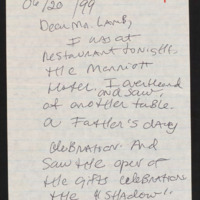 06/20/99
Dear Mr. Lamb,
I was at
restaurant tonight.
the Marriott
Hotel. I overheard
and saw,
at another table.
a Father's day
celebration. And
saw the open of
the gifts celebration
the "Shadow"